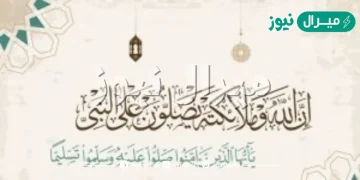 ميرال نيوز
إن الله وملائكته يصلون على النبي
يا أيها الذين آمنوا صلوا عليه وسلموا تسليما